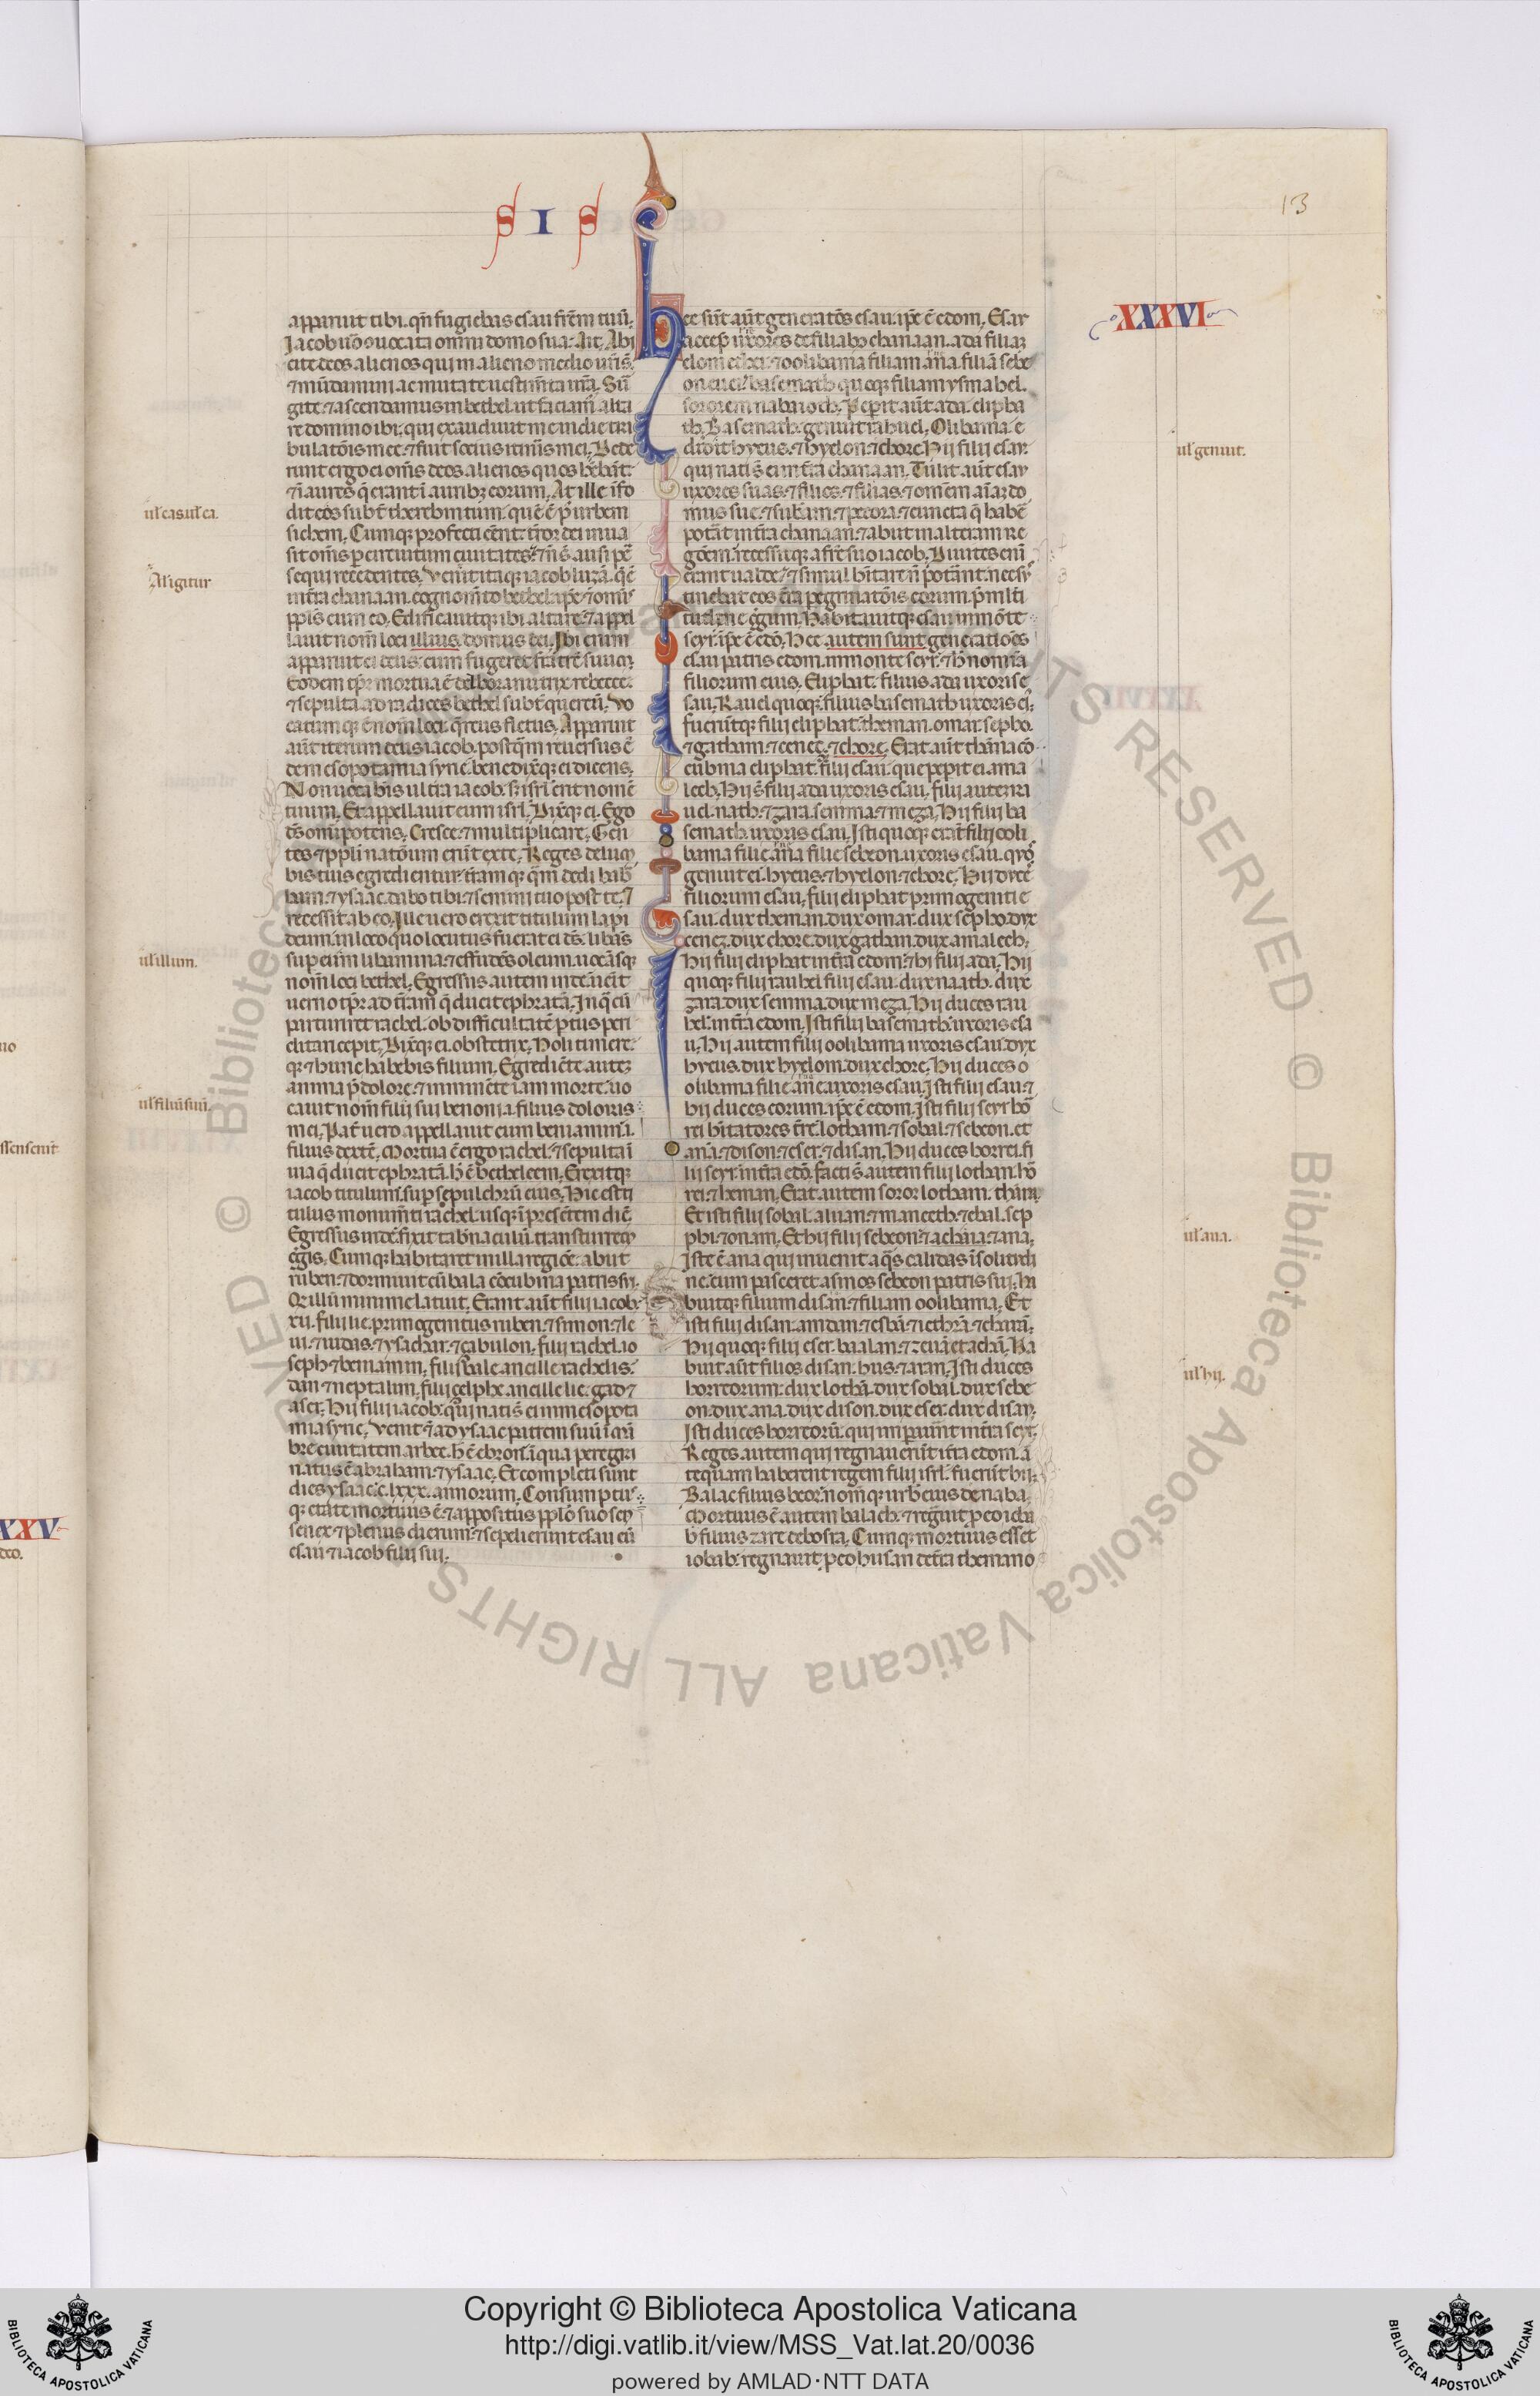 S I S
13
apparuit tibi. qn̄ fugiebas esau frēm tuū.
Iacob uo conuocata omni domo sua. Ait. Abi
cite deos alienos qui in alieno medio ur̄i s̄.
⁊ mūdamini ac mutate uestim̄ta ur̄a. Sur̄
gite. ⁊ ascendamus in bethel. ut faciam̄ alta
re domino ibi. qui exaudiuit me in die tri
bulatōis mee. ⁊ fuit socius itin̄is mei. Dede
runt ergo ei om̄s deos alienos quos hēbāt.
⁊ īaures q̄ erant ī aurib; eorum. At ille īfo
dit eos subt̄ therebintum. que ē p̄ urbem
sichem. Cumq; profecti cēnt. t̄ror dei inua
sit om̄s per circuitum ciuitates. ⁊ ñ s̄ ausi per̄
sequi recedentes. Venit itaq; iacob luzā. q̄ ē
int̄ra chanaan. cognom̄to bethel. ip̄e ⁊ om̄is
ppl̄s cum eo. Edificauitq; ibi altare. ⁊ appel
lauit nom̄ loci illius. domus dei. Ibi enim
apparuit ei deus. cum fugeret fratrē suum.
Eodem tp̄re mortua ē delbora nutrix rebecce.
⁊ sepulta ad radices bethel subt̄ quercū. Vo
catumq; ē nom̄ loci. q̄rcus fletus. Apparuit
aūt iterum deus iacob. postq̄m reuersus ē
de mesopotamia syrie. benedix̄q; ei dicens.
Non uocab̄is ultra iacob. s; isrl̄ erit nomē
tuum. Et appellauit eum isrl̄. Dix̄q; ei. Ego
ds̄ om̄ipotens. Cresce. ⁊ multiplicare. Gen
tes ⁊ ppl̄i natōum erūt ex te. Reges de lum
bis tuis egredientur. t̄ram q; q̄m dedi hab̄
ham. ⁊ ysaac. dabo tibi. ⁊ semini tuo post te. ⁊
recessit ab eo. Ille uero erexit titulum lapi
deum. in loco quo locutus fuerat ei ds̄. libans̄
sup eum libamina. ⁊ effundēs oleum. uocāsq;
nom̄ loci bethel. Egressus autem inde. uēit
uerno tp̄r ad t̄ram q̄ ducit ephratā. In q̄ cū
parturiret rachel. ob difficultatē p̄tus peri
clitari cepit. Dix̄q; ei obstetrix. Noli timere.
q; ⁊ hunc habebis filium. Egrediēte autez
anima p̄ dolore. ⁊ imminēte iam morte. uo
cauit nom̄ filii sui benoni. i. filius doloris
mei. Pat̄ uero appellauit eum beniamin. i.
filius dext̄e. Mortua ē ergo rachel. ⁊ sepulta ī
uia q̄ ducit ephratā. h̄ ē bethleem. Erexitq;
iacob titulum. sup̄ sepulchrū eius. Hic est ti
tulus monum̄ti rachel. usq; ī presētem diē.
Egressus inde. fixit tab̄naculū. trans turrem
gregis. Cumq; habitaret in illa regiōe. abiit
ruben. ⁊ dormiuit cū bala cōcubina patris sui.
Q; illū minime latuit. Erant aūt filii iacob.
xii. filii lie. primogenitus ruben. ⁊ simon. ⁊ le
ui. ⁊ iudas. ⁊ ysachar. ⁊ zabulon. filii rachel. io
seph ⁊ beniamin. filii bale ancille rachelis.
dan ⁊ neptalim. filii zelphe ancille lie. gad ⁊
aser. Hii filii iacob. qui nati s̄ ei in mesopota
mia syrie. Venit ⁊ ad ysaac patrem suū ī mā
bre ciuitatem arbee. h̄ ē ebron. ī qua peregri
natus ē abraham. ⁊ ysaac. Et completi sunt
dies ysaac. c. lxxx. annorum. Consumptus
q; etate mortuus ē. ⁊ appositus ppl̄o suo. sen
senex ⁊ plenus dierum. ⁊ sepelierunt esau eū
esau ⁊ iacob filii sui.
ul' eas. ul' ea.
Al' igitur
ul' illum.
ul' filiū suū.
XXXVI
hec sūt aūt generatōes esau. ip̄e ē edom. Esau
accep̄ uxores de filiab; chanaan. ada filiaz
elom ethei. ⁊ oolibama filiam ana. filiā sebe
on euei. basemath quoq; filiam ysmahel.
sororem nabaioth. Pep̄it aūt ada. elipha
th. Basemath. genuit rahuel. Olibama e
didit hyeus. ⁊ hyelon. ⁊ chore. Hii filii esau.
qui nati s̄ ei in t̄ra chanaan. Tulit aūt esau
uxores suas. ⁊ filios. ⁊ filias. ⁊ omēm aīaz do
mus sue. ⁊ sub̄am. ⁊ pecora. ⁊ cuncta q̄ habē
potāt in t̄ra chanaan. ⁊ abiit in alteram re
gōem. recessitq; a frē suo iacob. Diuites eni
erant ualde. ⁊ simul h̄itare ñ potāt. nec sus
tinebat eos t̄ra pegrinatōis eorum. p̄ multi
tudine ḡgum. Habitauitq; esau in mōte
seyr. ip̄e ē edō. Hee autem sunt generatiōes
esau patris edom. in monte seyr. ⁊ h̄ nomīa
filiorum eius. Eliphat. filius ada uxoris e
sau. Rauel quoq; filius basemath uxoris ei;
fuerūtq; filii eliphat. theman. omar. sepho.
⁊ gatham. ⁊ cenez. ⁊ chore. Erat aūt thāna cō
cubina eliphat. filii esau. que pepit ei ama
lech. Hii s̄ filii ada uxoris esau. filii autem ra
uel. nath. ⁊ zara. semma. ⁊ meza. Hii filii ba
semath uxoris esau. Isti quoq; erāt filii ooli
bama filie ana filie sebeon. uxoris esau. quos
genuit ei. hyeus. ⁊ hyelon. ⁊ chore. Hii duces
filiorum esau. filii eliphat primogeniti e
sau. dux theman. dux omar. dux sepho. dux
cenez. dux chore. dux gathan. dux amalech.
Hii filii eliphat in t̄ra edom. ⁊ hi filii ada. Hii
quoq; filii rauhel filii esau. dux naath. dux
zara. dux semma. dux meza. Hii duces rau
hel. in t̄ra edom. Isti filii basemath uxoris esa
u. Hii autem filii oolibama uxoris esau. dux
hyeus. dux hyelom. dux chore. Hii duces o
olibama filie ane. uxoris esau. Isti filii esau. ⁊
hii duces eorum. ip̄e ē edom. Isti filii seyr hō
rei h̄itatores t̄re. lotham. ⁊ sobal. ⁊ sebeon. et
ana. ⁊ dison. ⁊ eser. ⁊ disan. Hii duces horrei. fi
lii seyr. in t̄ra edō. facti s̄ autem filii lothan. hō
rei. ⁊ heman. Erat autem soror lotham. thāna.
Et isti filii sobal. aluan. ⁊ manceth. ⁊ ebal. sep
phi. ⁊ onam. Et hii filii sebeon. ⁊ achaia. ⁊ ana.
Iste ē ana qui inuenit aq̄s calidas ī solitudi
ne. cum pasceret asinos sebeon patris sui. Ha
buitq; filium disan. ⁊ filiam oolibama. Et
isti filii disan. amdan. ⁊ esbā. ⁊ iethrā. ⁊ charā.
Hii quoq; filii eser. baalan. ⁊ zeuā. et achā. Ha
buit aūt filios disan. hus. ⁊ aran. Isti duces
horreorum. dux lothā. dux sobal. dux sebe
on. dux ana. dux dison. dux eser. dux disan.
Isti duces horreorū. qui imparūnt in t̄ra seyr.
Reges autem qui regnauerūt ī t̄ra edom. ā
tequam haberent regem filii isrl̄. fuerūt hii.
Balac filius beor. nom̄q; urb̄ eius denaba.
Mortuus ē autem balach. ⁊ regnauit p eo ioba
b filius zare de bosra. Cumq; mortuus esset
iobab. regnauit p eo husan de t̄ra themano
ul' genuit.
ul' ana.
ul' hij.
XXV
Copyright © Biblioteca Apostolica Vaticana
http://digi.vatlib.it/view/MSS_Vat.lat.20/0036
powered by AMLAD·NTT DATA
BIBLIOTECA APOSTOLICA VATICANA
BIBLIOTECA APOSTOLICA VATICANA